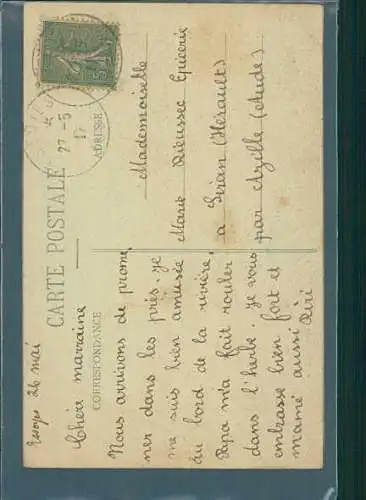 CARTE POSTALE
CORRESPONDANCE
ADRESSE
27-5
17
26 mai
Chère marraine
Nous arrivons de prome
ner dans les près. Je
me suis bien amusée
au bord de la rivière.
Papa m'a fait rouler
dans l'herbe. Je vous
embrasse bien fort et
mamé aussi
Riri
Mademoiselle
Marie Rieussec Epicerie
a Siran (Hérault)
par Azille (Aude)